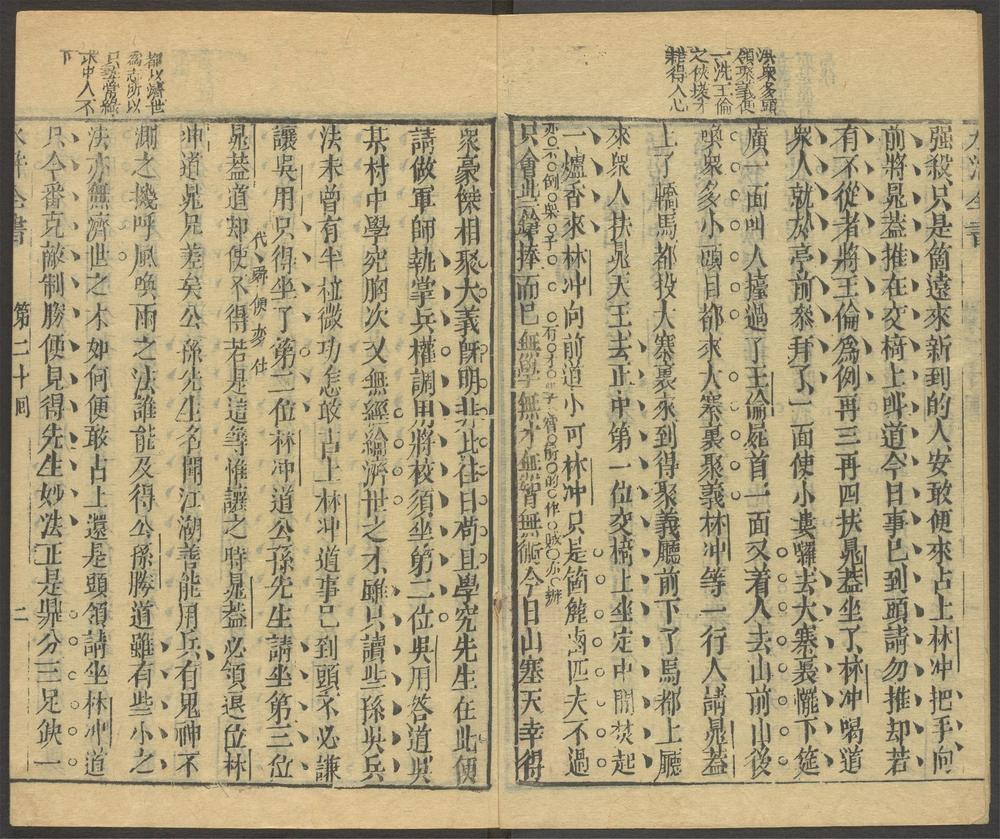 洪衆多頭
領聚義便
一洗王倫
之俠
難得人心
水滸全書
强殺只是箇遠來新到的人安敢便來占上林冲把手向
前將晁蓋推在交椅上叫道今日事已到頭請勿推却若
有不從者將王倫爲例再三再四扶晁蓋坐了林冲喝道
衆人就於亭前參拜了一面使小嘍囉去大寨裏擺下筵
席一面叫人擡過了王倫屍首一面又着人去山前山後
喚衆多小頭目都來大寨裏聚義林冲等一行人請晁蓋
上了轎馬都投大寨裏來到得聚義廳前下了馬都上廳
來衆人扶晁天王去正中第一位交椅上坐定中間焚起
一爐香來林冲向前道小可林冲只是箇麄鹵匹夫不過
只會些鎗棒而已無學無才無智無術今日山寨天幸得
衆豪傑相聚大義旣明非比往日苟且學究先生在此便
請做軍師執掌兵權調用將校須坐第二位吳用答道吳
某村中學究胸次又無經綸濟世之才雖只讀些孫吳兵
法未曾有半粒微功怎敢占上林冲道事已到頭不必謙
讓吳用只得坐了第二位林冲道公孫先生請坐第三位
晁蓋道却使不得若是這等推讓之時晁蓋必須退位林
冲道晁兄差矣公孫先生名聞江湖善能用兵有鬼神不
測之機呼風喚雨之法誰能及得公孫勝道雖有些小之
法亦無濟世之才如何便敢占上還是頭領請坐林冲道
只今番克敵制勝便見得先生妙法正是鼎分三足缺一
水滸全書 第二十回 二
都以濟世
爲志所以
只尋常綠
林中人不